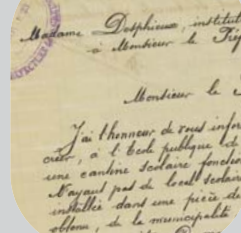 Madame Desphieux, institut
à Monsieur le Préf
Monsieur le
J'ai l'honneur de vous infor
créer, à l'école publique de
une cantine scolaire fonction
N'ayant pas de local scolaire
installée dans une pièce de
obtenu, de la municipalité